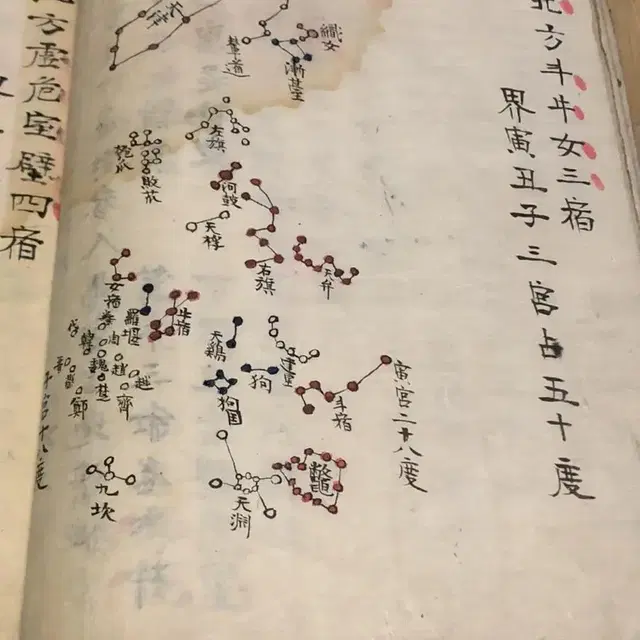 北方斗牛女三宿
界寅丑子三宮占五十度
寅宮二十八度
織女
漸臺
輦道
左旗
河鼓
天桴
右旗
天弁
瓠瓜
敗瓜
女宿
牛宿
羅堰
天鷄
建星
狗
狗国
斗宿
秦
戌
韓
魏
趙
越
楚
齊
鄭
九坎
天淵
鼈
方虛危室壁四宿